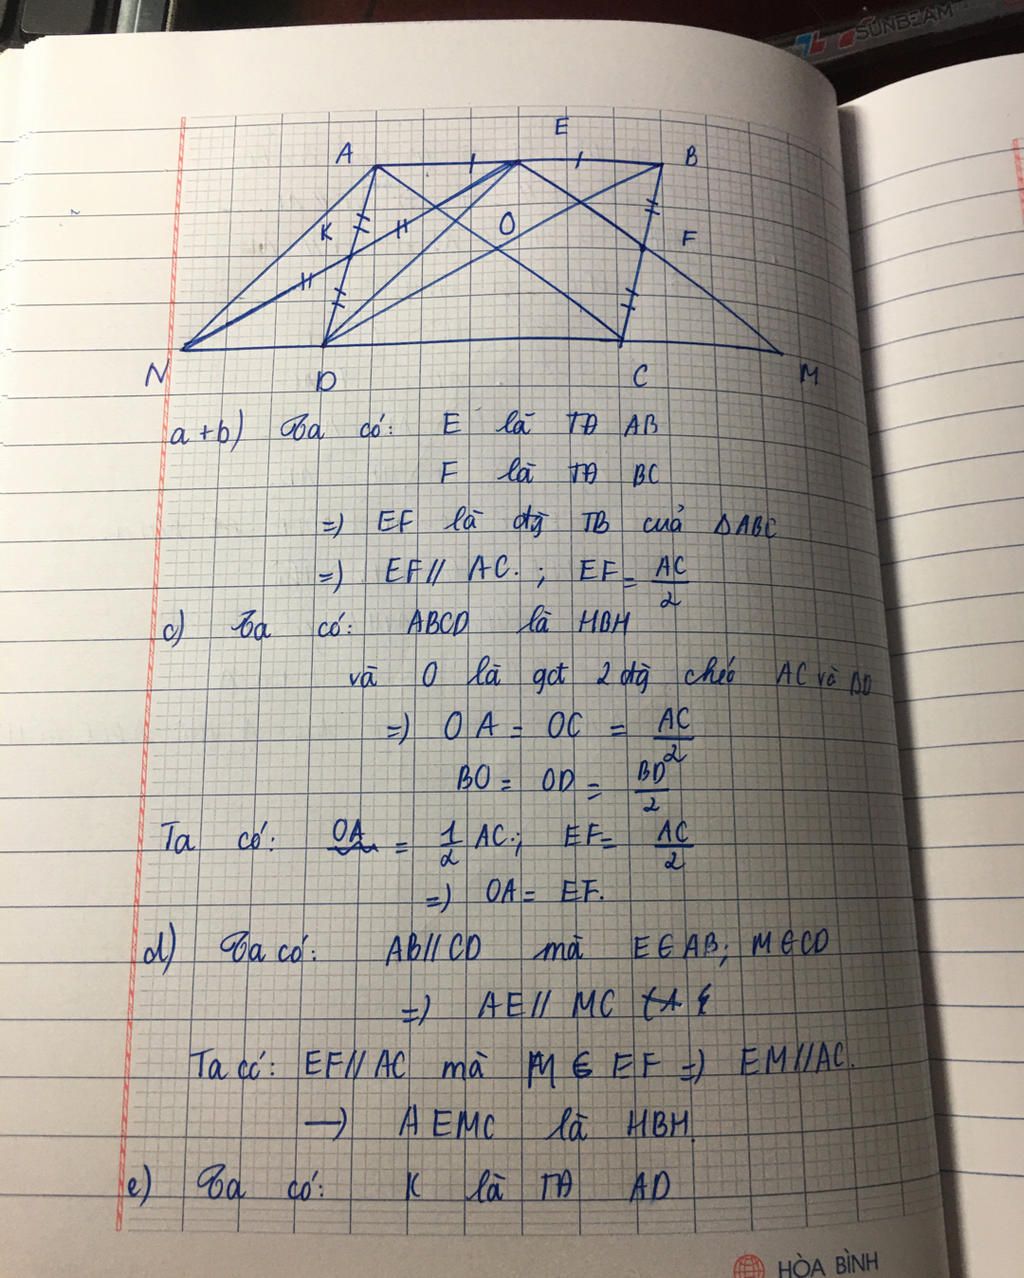 SUNBEAM
A E B
K O F
N D C M
a+b) Ta có: E là TĐ AB
F là TĐ BC
=) EF là đg TB cuả ΔABC
=) EF// AC. ; EF = AC/2
c) Ta có: ABCD là HBH
và O là gđ 2 đg chéo AC và BD
=) OA = OC = AC/2
BO = OD = BD/2
Ta có: OA = 1/2 AC; EF = AC/2
=) OA = EF.
d) Ta có: AB//CD mà E∈AB; M∈CD
=) AE// MC
Ta có: EF//AC mà M ∈ EF =) EM//AC.
—) AEMC là HBH.
e) Ta có: K là TĐ AD
HÒA BÌNH